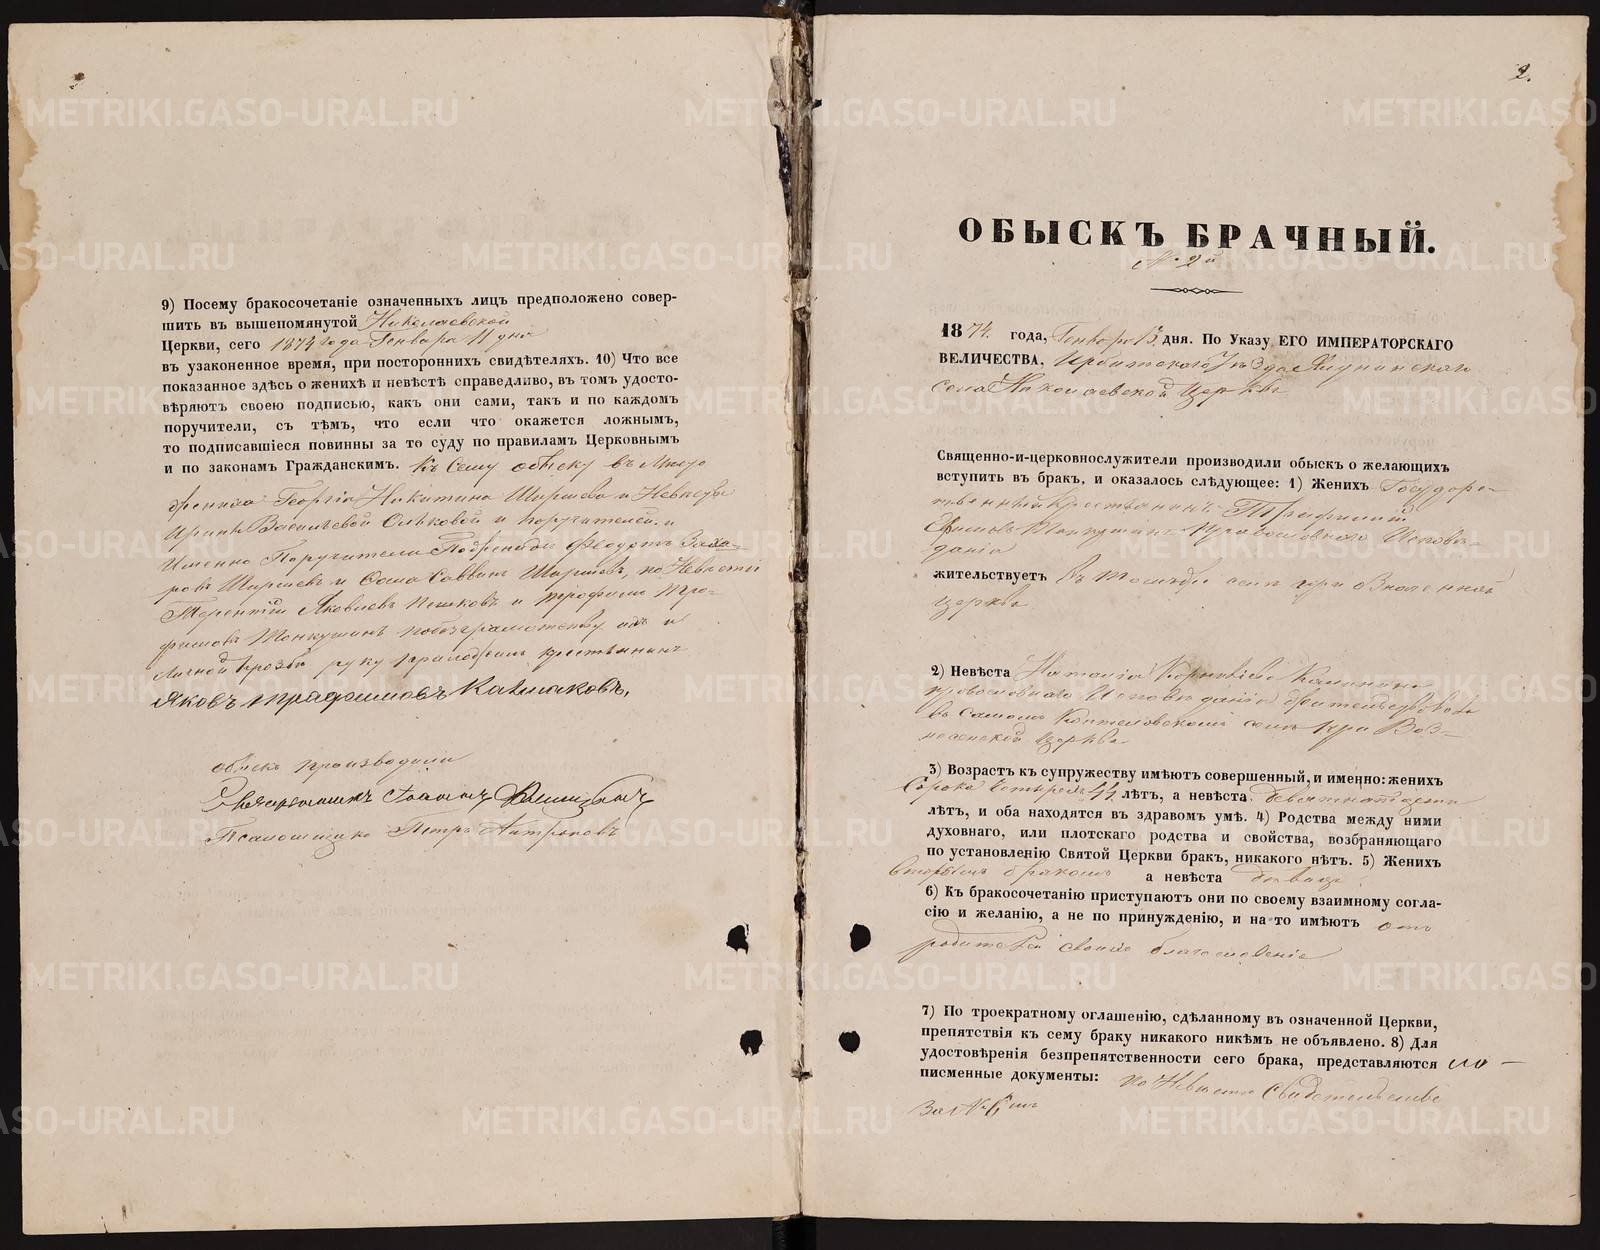 9) Посему бракосочетаніе означенныхъ лицъ предположено совер-
шить въ вышепомянутой Николаевской
Церкви, сего 1874 года Генваря 11 дня
въ узаконенное время, при постороннихъ свидѣтеляхъ. 10) Что все
показанное здѣсь о женихѣ и невѣстѣ справедливо, въ томъ удосто-
вѣряютъ своею подписью, какъ они сами, такъ и по каждомъ
поручители, съ тѣмъ, что если что окажется ложнымъ,
то подписавшіеся повинны за то суду по правиламъ Церковнымъ
и по законамъ Гражданскимъ. Къ сему обыску въ мѣсто
Георгія Никитина Ширшева и Невѣсты
Ирины Васильевой и поручителей. и
именно Поручители Феодотъ Заха-
ровъ Ширшевъ и Саввинъ Ширшевъ, по Невѣстѣ
Терентій Яковлевъ и Трофимъ Тро-
фимовъ Тонкушинъ по безграмотству ихъ и
личной прозбѣ руку приложилъ крестьянинъ
Яковъ Трафимовъ
обыскъ производили
Священникъ Іоаннъ
Псаломщикъ Петръ
2.
ОБЫСКЪ БРАЧНЫЙ.
№ 2й
1874. года, Генваря 13. дня. По Указу ЕГО ИМПЕРАТОРСКАГО
ВЕЛИЧЕСТВА. Ирбитскаго уѣзда
села Николаевской Церкви
Священно-и-церковнослужители производили обыскъ о желающихъ
вступить въ бракъ, и оказалось слѣдующее: 1) Женихъ Государс-
твенный крестьянинъ Трафимъ
Тонкушинъ Православнаго Исповѣ-
данія
жительствуетъ въ селѣ при Вознесенской
церкви
2) Невѣста Наталія Калинина
православнаго Исповѣданія жительствовала
въ самомъ Коптеловскомъ селѣ при Воз-
несенской церкви
3) Возрастъ къ супружеству имѣютъ совершенный, и именно: женихъ
Сорока четырехъ 44. лѣтъ, а невѣста девятнатцати
лѣтъ, и оба находятся въ здравомъ умѣ. 4) Родства между ними
духовнаго, или плотскаго родства и свойства, возбраняющаго
по установленію Святой Церкви бракъ, никакого нѣтъ. 5) Женихъ
вторымъ бракомъ а невѣста дѣвица
6) Къ бракосочетанію приступаютъ они по своему взаимному согла-
сію и желанію, а не по принужденію, и на-то имѣютъ отъ
родителей своихъ благословеніе
7) По троекратному оглашенію, сдѣланному въ означенной Церкви,
препятствія къ сему браку никакого никѣмъ не объявлено. 8) Для
удостовѣренія безпрепятственности сего брака, представляются
писменные документы: по Невѣстѣ Свидетельство
за № 6мъ
METRIKI.GASO-URAL.RU